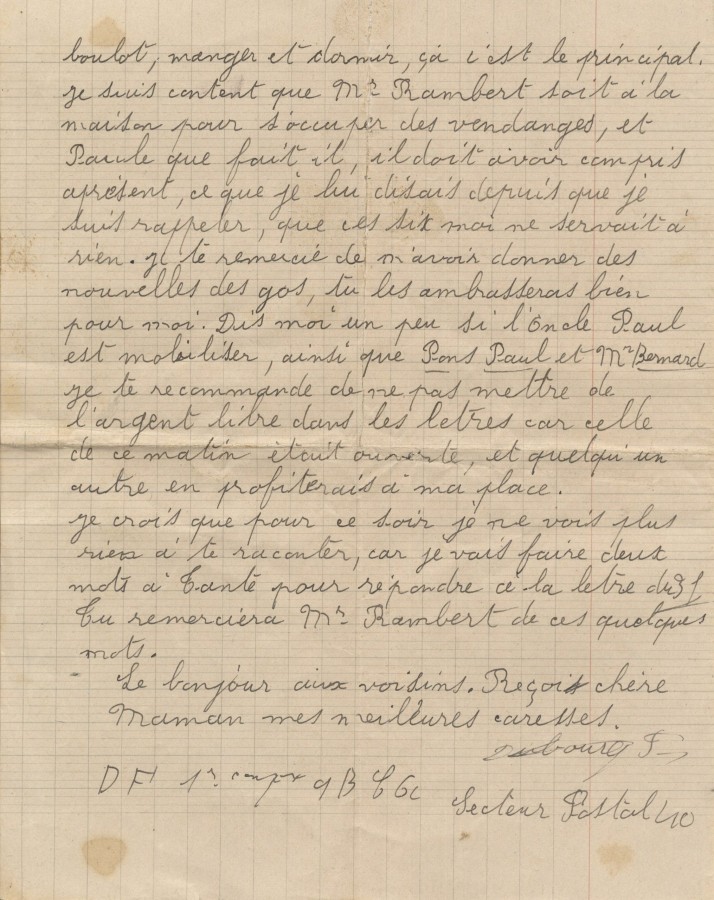 boulot, manger et dormir, çà c'est le principal.
je suis content que Mr Rambert soit à la
maison pour s'occuper des vendanges, et
Paule que fait il, il doit avoir compris
aprésent, ce que je lui disais depuis que je
suis rappeler, que ces six moi ne servait à
rien. je te remercié de m'avoir donner des
nouvelles des gos, tu les ambrasseras bien
pour moi. Dis moi un peu si l'Oncle Paul
est mobiliser, ainsi que Pons Paul et Mr Bernard
je te recommande de ne pas mettre de
l'argent libre dans les letres car celle
de ce matin était ouverte, et quelqu'un
autre en profiterais à ma place.
je crois que pour ce soir je ne vois plus
rien à te raconter, car je vais faire deux
mots à Tante pour répondre à la letre du
Tu remerciéra Mr Rambert de ces quelques
mots.
Le bonjour aux voisins. Reçois chère
Maman mes meilleures caresses.
DF 1r 9 B
Secteur Postal 410